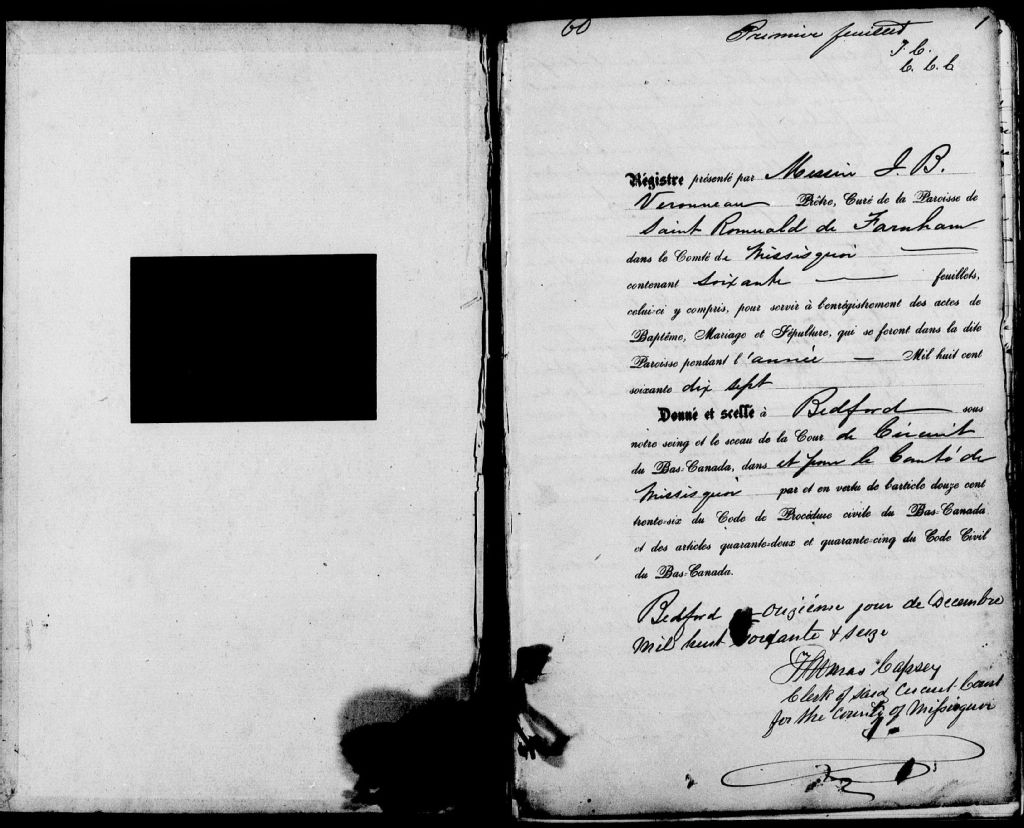 60 Premier feuillet 1
T. C.
C. C. C
Régistre présenté par Messire J. B.
Veronneau Prêtre, Curé de la Paroisse de
Saint Romuald de Farnham
dans le Comté de Missisquoi
contenant soixante feuillets,
celui-ci y compris, pour servir à l'enrégistrement des actes de
Baptême, Mariage et Sépulture, qui se feront dans la dite
Paroisse pendant l'année — Mil huit cent
soixante dix sept
Donné et scellé à Bedford sous
notre seing et le sceau de la Cour de Circuit
du Bas-Canada, dans et pour le Comté de
Missisquoi par et en vertu de l'article douze cent
trente-six du Code de Procédure civile du Bas-Canada
et des articles quarante-deux et quarante-cinq du Code Civil
du Bas-Canada.
Bedford onzième jour de Decembre
Mil huit soixante & seize
Thomas Capsey
Clerk of said Circuit Court
for the County of Missisquoi